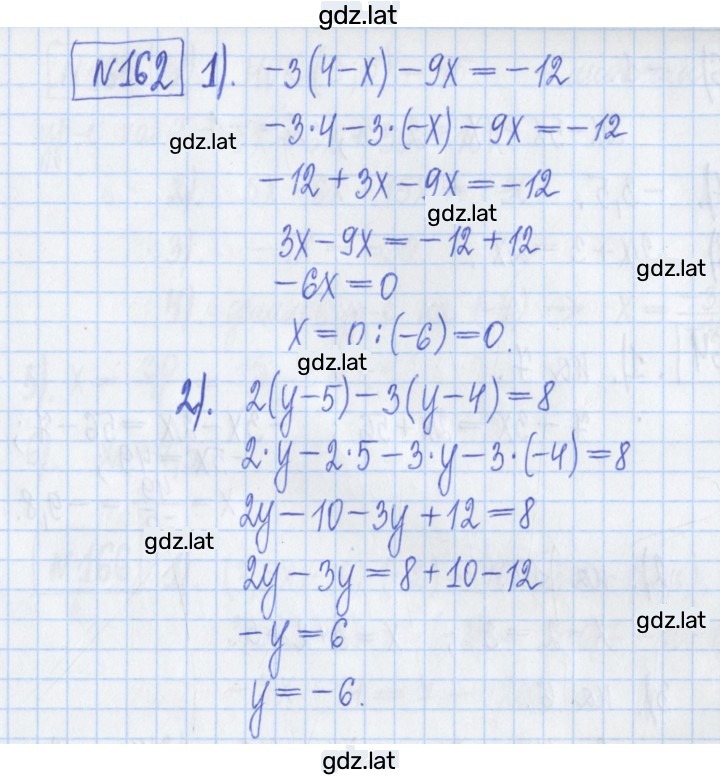 gdz.lat
№162 1). -3(4-x)-9x=-12
-3·4-3·(-x)-9x=-12
gdz.lat
-12+3x-9x=-12
gdz.lat
3x-9x=-12+12
gdz.lat
-6x=0
x=0:(-6)=0.
gdz.lat
2). 2(y-5)-3(y-4)=8
2·y-2·5-3·y-3·(-4)=8
2y-10-3y+12=8
gdz.lat
2y-3y=8+10-12
gdz.lat
-y=6
y=-6.
gdz.lat